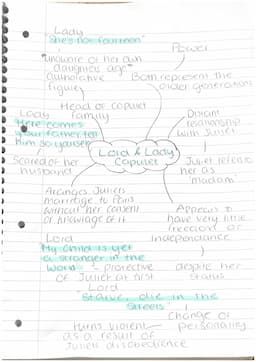 Lady
"She's not fourteen"
unaware of her own
daughters age
Authoritative
figure
Power
Both represent the
older generation
Head of Capulet
family
Lady
"Here comes
your father, tell
him so yourself"
Scared of her
husband
Lord & Lady
Capulet
Distant
relationship
with Juliet
Juliet refers to
her as
"madam"
Arranges Juliets
marriage to Paris
without her consent
or knowledge of it
Appears to
have very little
freedom or
independance
despite her
status
Lord
"My child is yet
a stranger in the
world" - protective
of Juliet at first
Lord
"Starve, die in the
streets"
Change of
personality
Turns violent
as a result of
Juliets disobedience